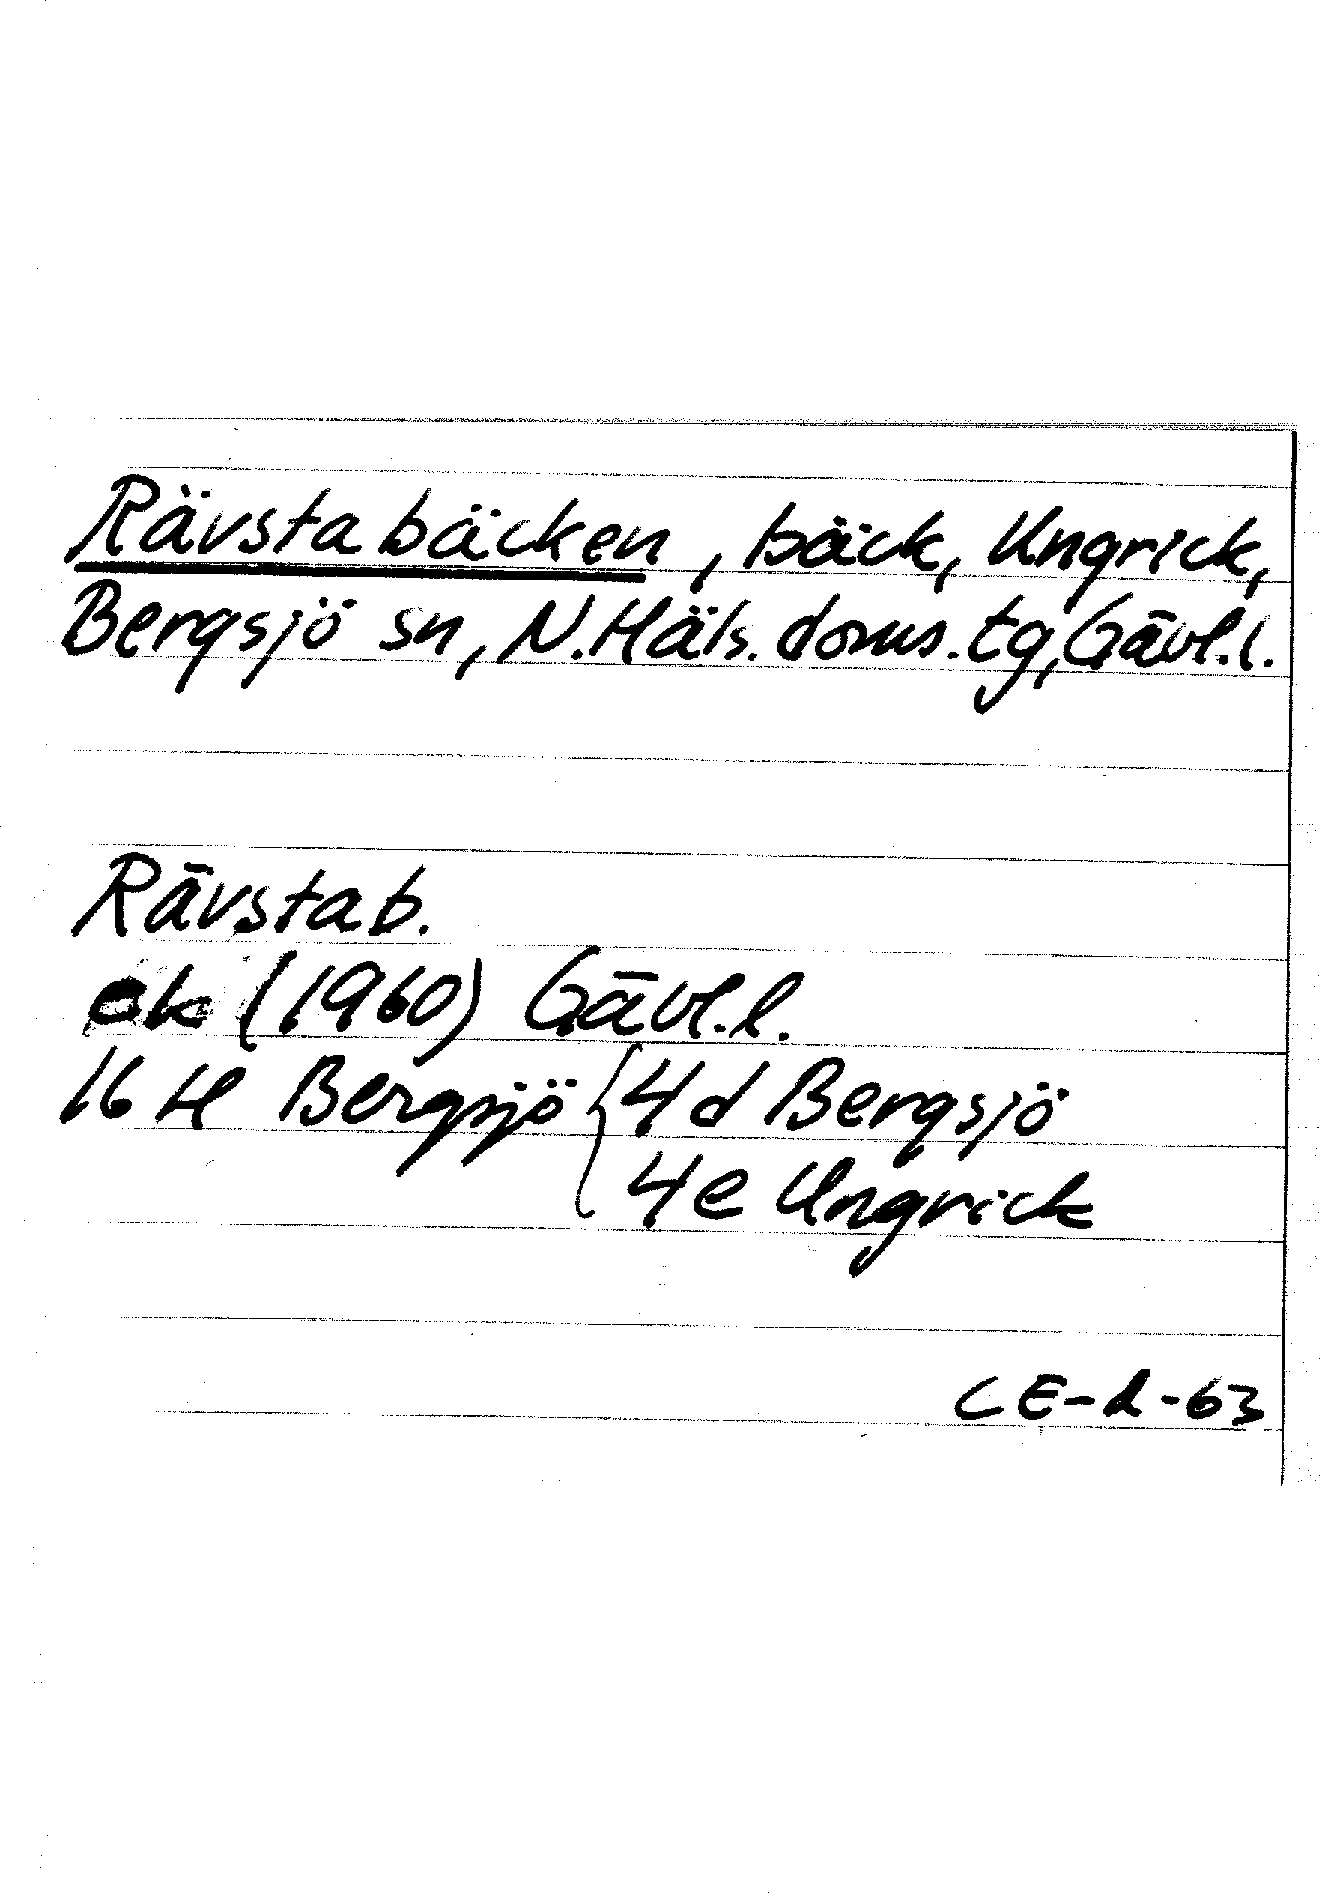 Rävstabäcken, bäck, Ungrick,
Bergsjö sn, N. Häls. doms. tg, Gävl. l.
Rävstab.
ek (1960) Gävl. l.
16 H Bergsjö { 4 d Bergsjö
4 e Ungrick
CE-d-63